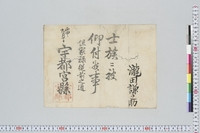 瀧田謙而
士族ニ被
仰付候事
但家禄従前之通
宇都宮縣